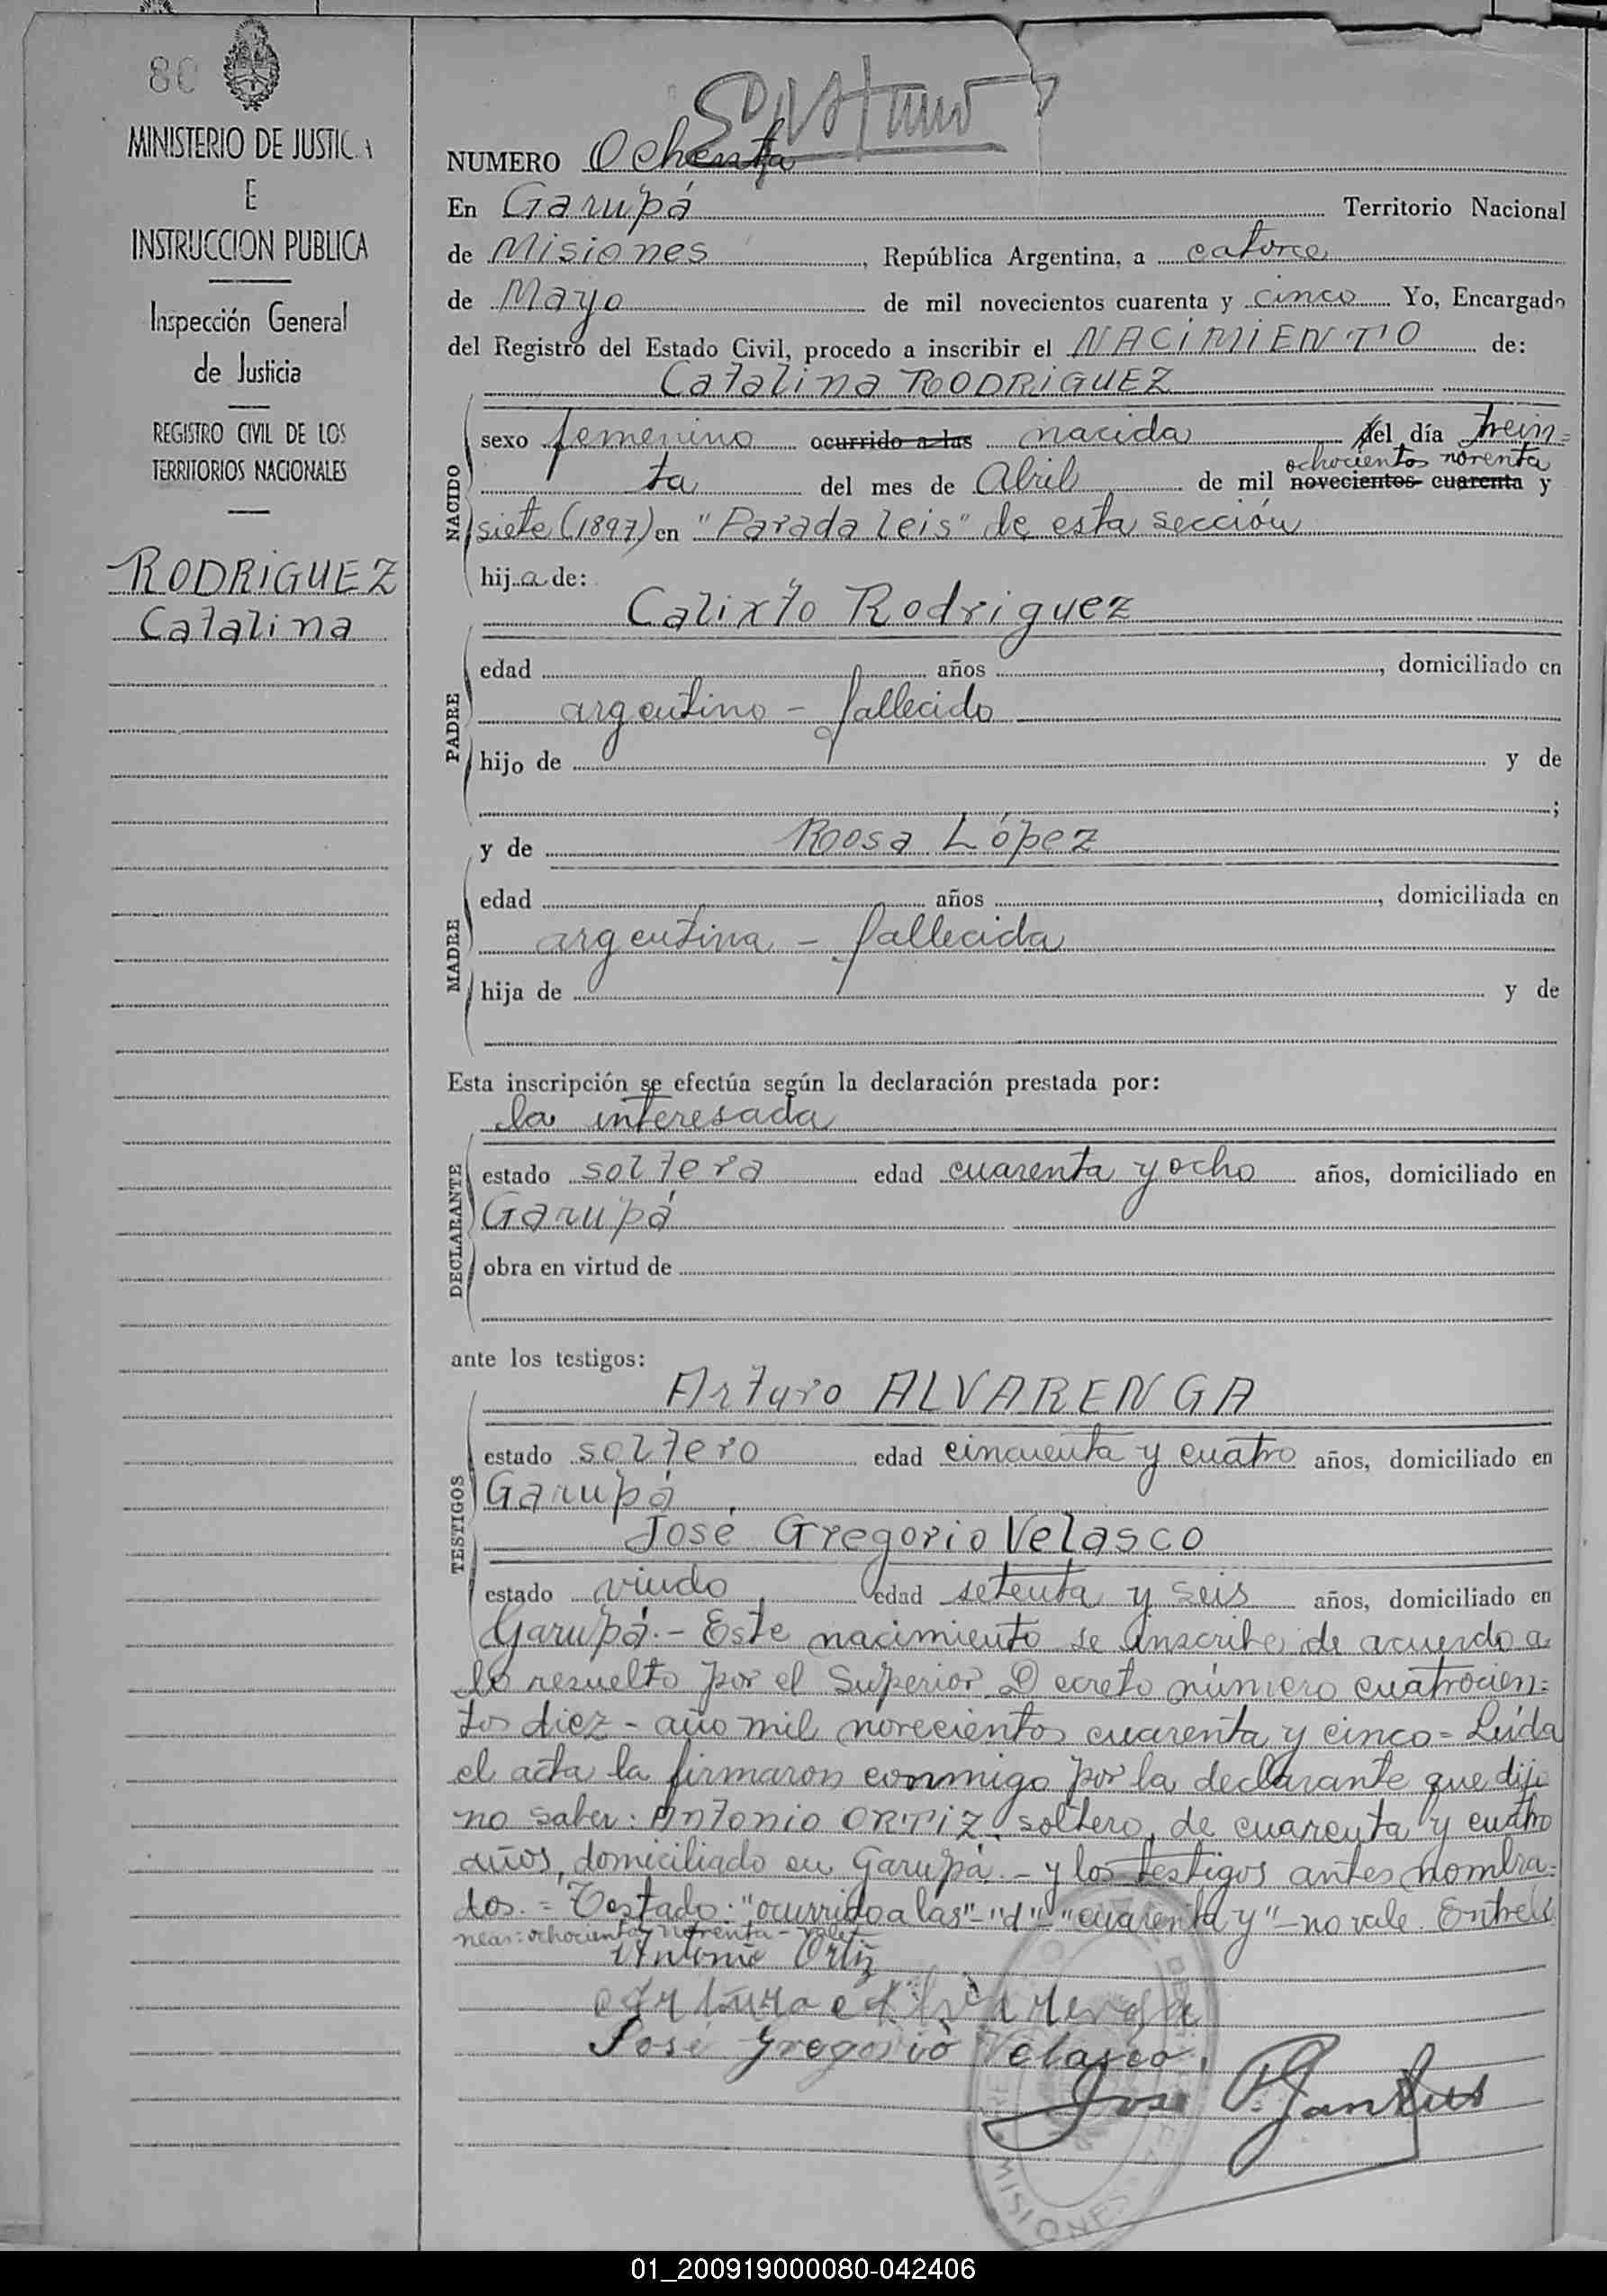 80
MINISTERIO DE JUSTICIA
E
INSTRUCCION PUBLICA
Inspección General
de Justicia
REGISTRO CIVIL DE LOS
TERRITORIOS NACIONALES
RODRIGUEZ
Catalina
NUMERO Ochenta
En Garupá Territorio Nacional
de Misiones, República Argentina, a catorce
de Mayo de mil novecientos cuarenta y cinco Yo, Encargado
del Registro del Estado Civil, procedo a inscribir el NACIMIENTO de:
Catalina RODRIGUEZ
NACIDO
sexo femenino ocurrido a las nacida del día trein=
ochocientos noventa
ta del mes de Abril de mil novecientos cuarenta y
siete (1897) en "Parada Leis" de esta sección
hija de:
Calixto Rodriguez
PADRE
edad años, domiciliado en
argentino - fallecido
hijo de y de
;
y de Rosa López
MADRE
edad años, domiciliada en
argentina - fallecida
hija de y de
Esta inscripción se efectúa según la declaración prestada por:
la interesada
DECLARANTE
estado soltera edad cuarenta y ocho años, domiciliado en
Garupá
obra en virtud de
ante los testigos:
Arturo ALVARENGA
TESTIGOS
estado soltero edad cincuenta y cuatro años, domiciliado en
Garupá
José Gregorio Velasco
estado viudo edad setenta y seis años, domiciliado en
Garupá.- Este nacimiento se inscribe de acuerdo a
lo resuelto por el Superior Decreto número cuatrocien=
tos diez - año mil novecientos cuarenta y cinco = Leída
el acta la firmaron conmigo por la declarante que dijo
no saber: Antonio ORTIZ, soltero, de cuarenta y cuatro
años, domiciliado en Garupá.- y los testigos antes nombra=
dos. = Testado: "ocurrido a las"-"d"-"cuarenta y"-no vale. Entreli
neas: ochocientos noventa - vale
Antonio Ortiz
Arturo Alvarenga
José Gregorio Velasco
Jose P.
MISIONES
01_200919000080-042406